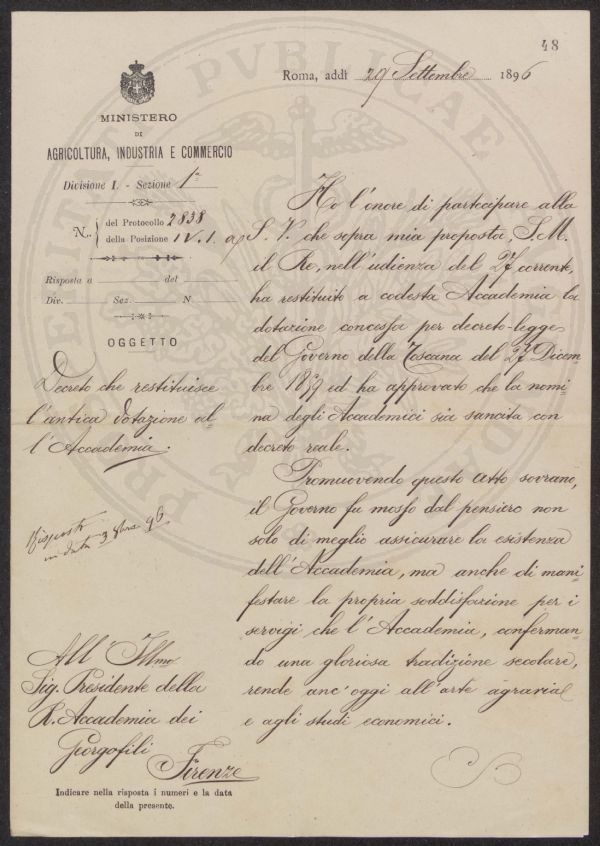 48
Roma, addì 29 Settembre 1896
MINISTERO
DI
AGRICOLTURA, INDUSTRIA E COMMERCIO
Divisione I. - Sezione 1ª
N. del Protocollo 2838
della Posizione IV. 1. a
Risposta a del
Div. Sez. N
OGGETTO
Decreto che restituisce
l'antica dotazione al-
l'Accademia.
Risposto
in data 3 8bre 96
All' Illmo
Sig. Presidente della
R. Accademia dei
Georgofili
Firenze
Indicare nella risposta i numeri e la data
della presente.
Ho l'onore di partecipare alla
S. V. che sopra mia proposta, S. M.
il Re, nell'udienza del 27 corrente,
ha restituito a codesta Accademia la
dotazione concessa per decreto-legge
del Governo della Toscana del 27 Dicem-
bre 1859 ed ha approvato che la nomi-
na degli Accademici sia sancita con
decreto reale.
Promuovendo questo atto sovrano,
il Governo fu mosso dal pensiero non
solo di meglio assicurare la esistenza
dell'Accademia, ma anche di mani-
festare la propria soddisfazione per i
servigi che l'Accademia, conferman-
do una gloriosa tradizione secolare,
rende anc'oggi all'arte agraria
e agli studi economici.